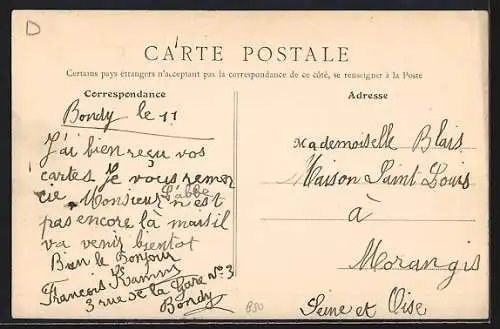 D
CARTE POSTALE
Certains pays étrangers n'acceptant pas la correspondance de ce côté, se renseigner à la Poste
Correspondance
Bondy le 11
J'ai bien reçu vos
cartes Je vous remer
cie Monsieur L'abbé n'est
pas encore là mais il
va venir bientot
Bien le Bonjour
François
3 rue de la Gare N° 3
Bondy
Adresse
Mademoiselle Blais
Maison Saint Louis
à
Morangis
Seine et Oise